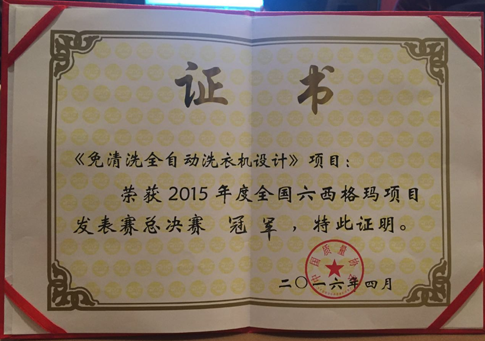 证书
《免清洗全自动洗衣机设计》项目：
荣获2015年度全国六西格玛项目
发表赛总决赛 冠军，特此证明。
中国质量协会
二〇一六年四月